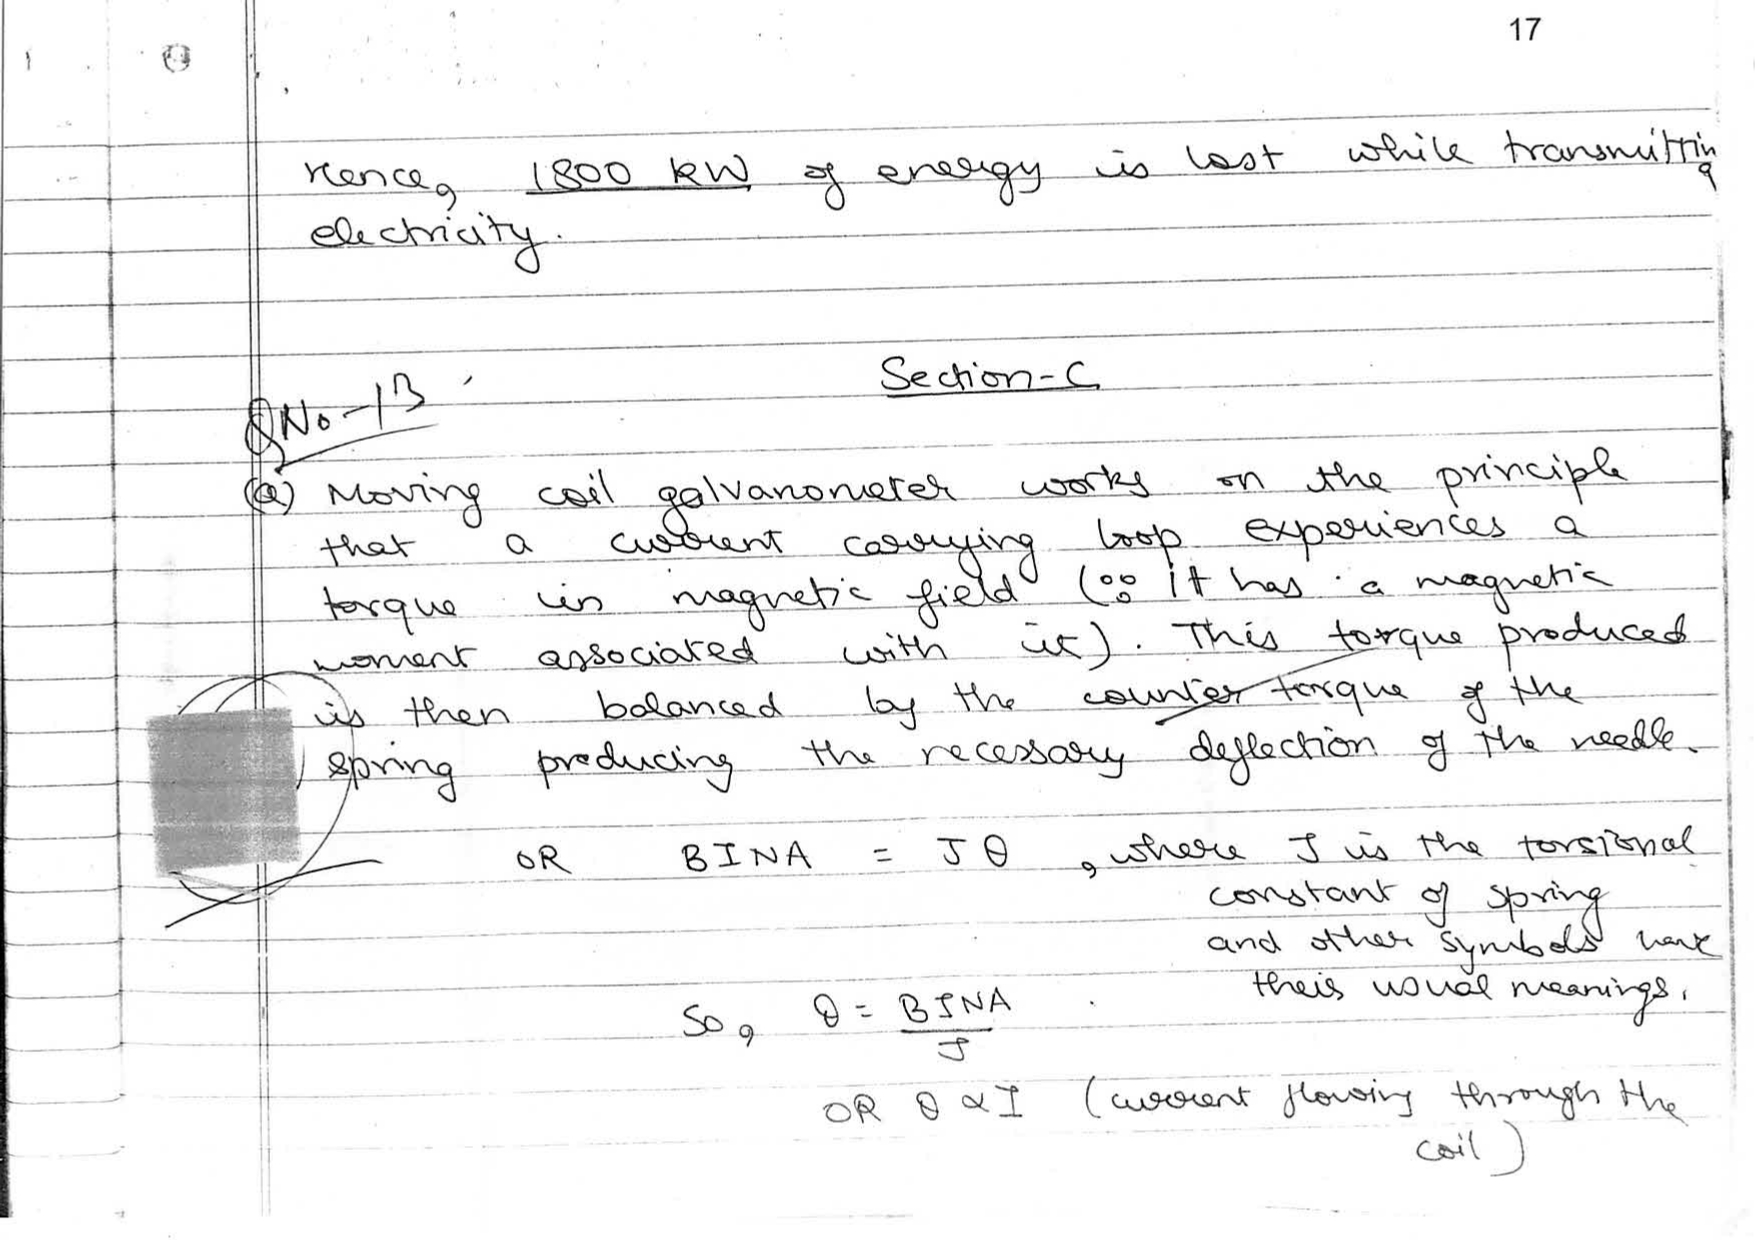 17
Hence, 1800 kW of energy is lost while transmitting
electricity.
Section-C
QNo-13
(a) Moving coil galvanometer works on the principle
that a current carrying loop experiences a
torque in magnetic field (∵ it has a magnetic
moment associated with it). This torque produced
is then balanced by the counter torque of the
spring producing the necessary deflection of the needle.
OR BINA = Jθ , where J is the torsional
constant of spring
and other symbols have
their usual meanings.
So, θ = BINA
J
OR θ ∝ I (current flowing through the
coil)